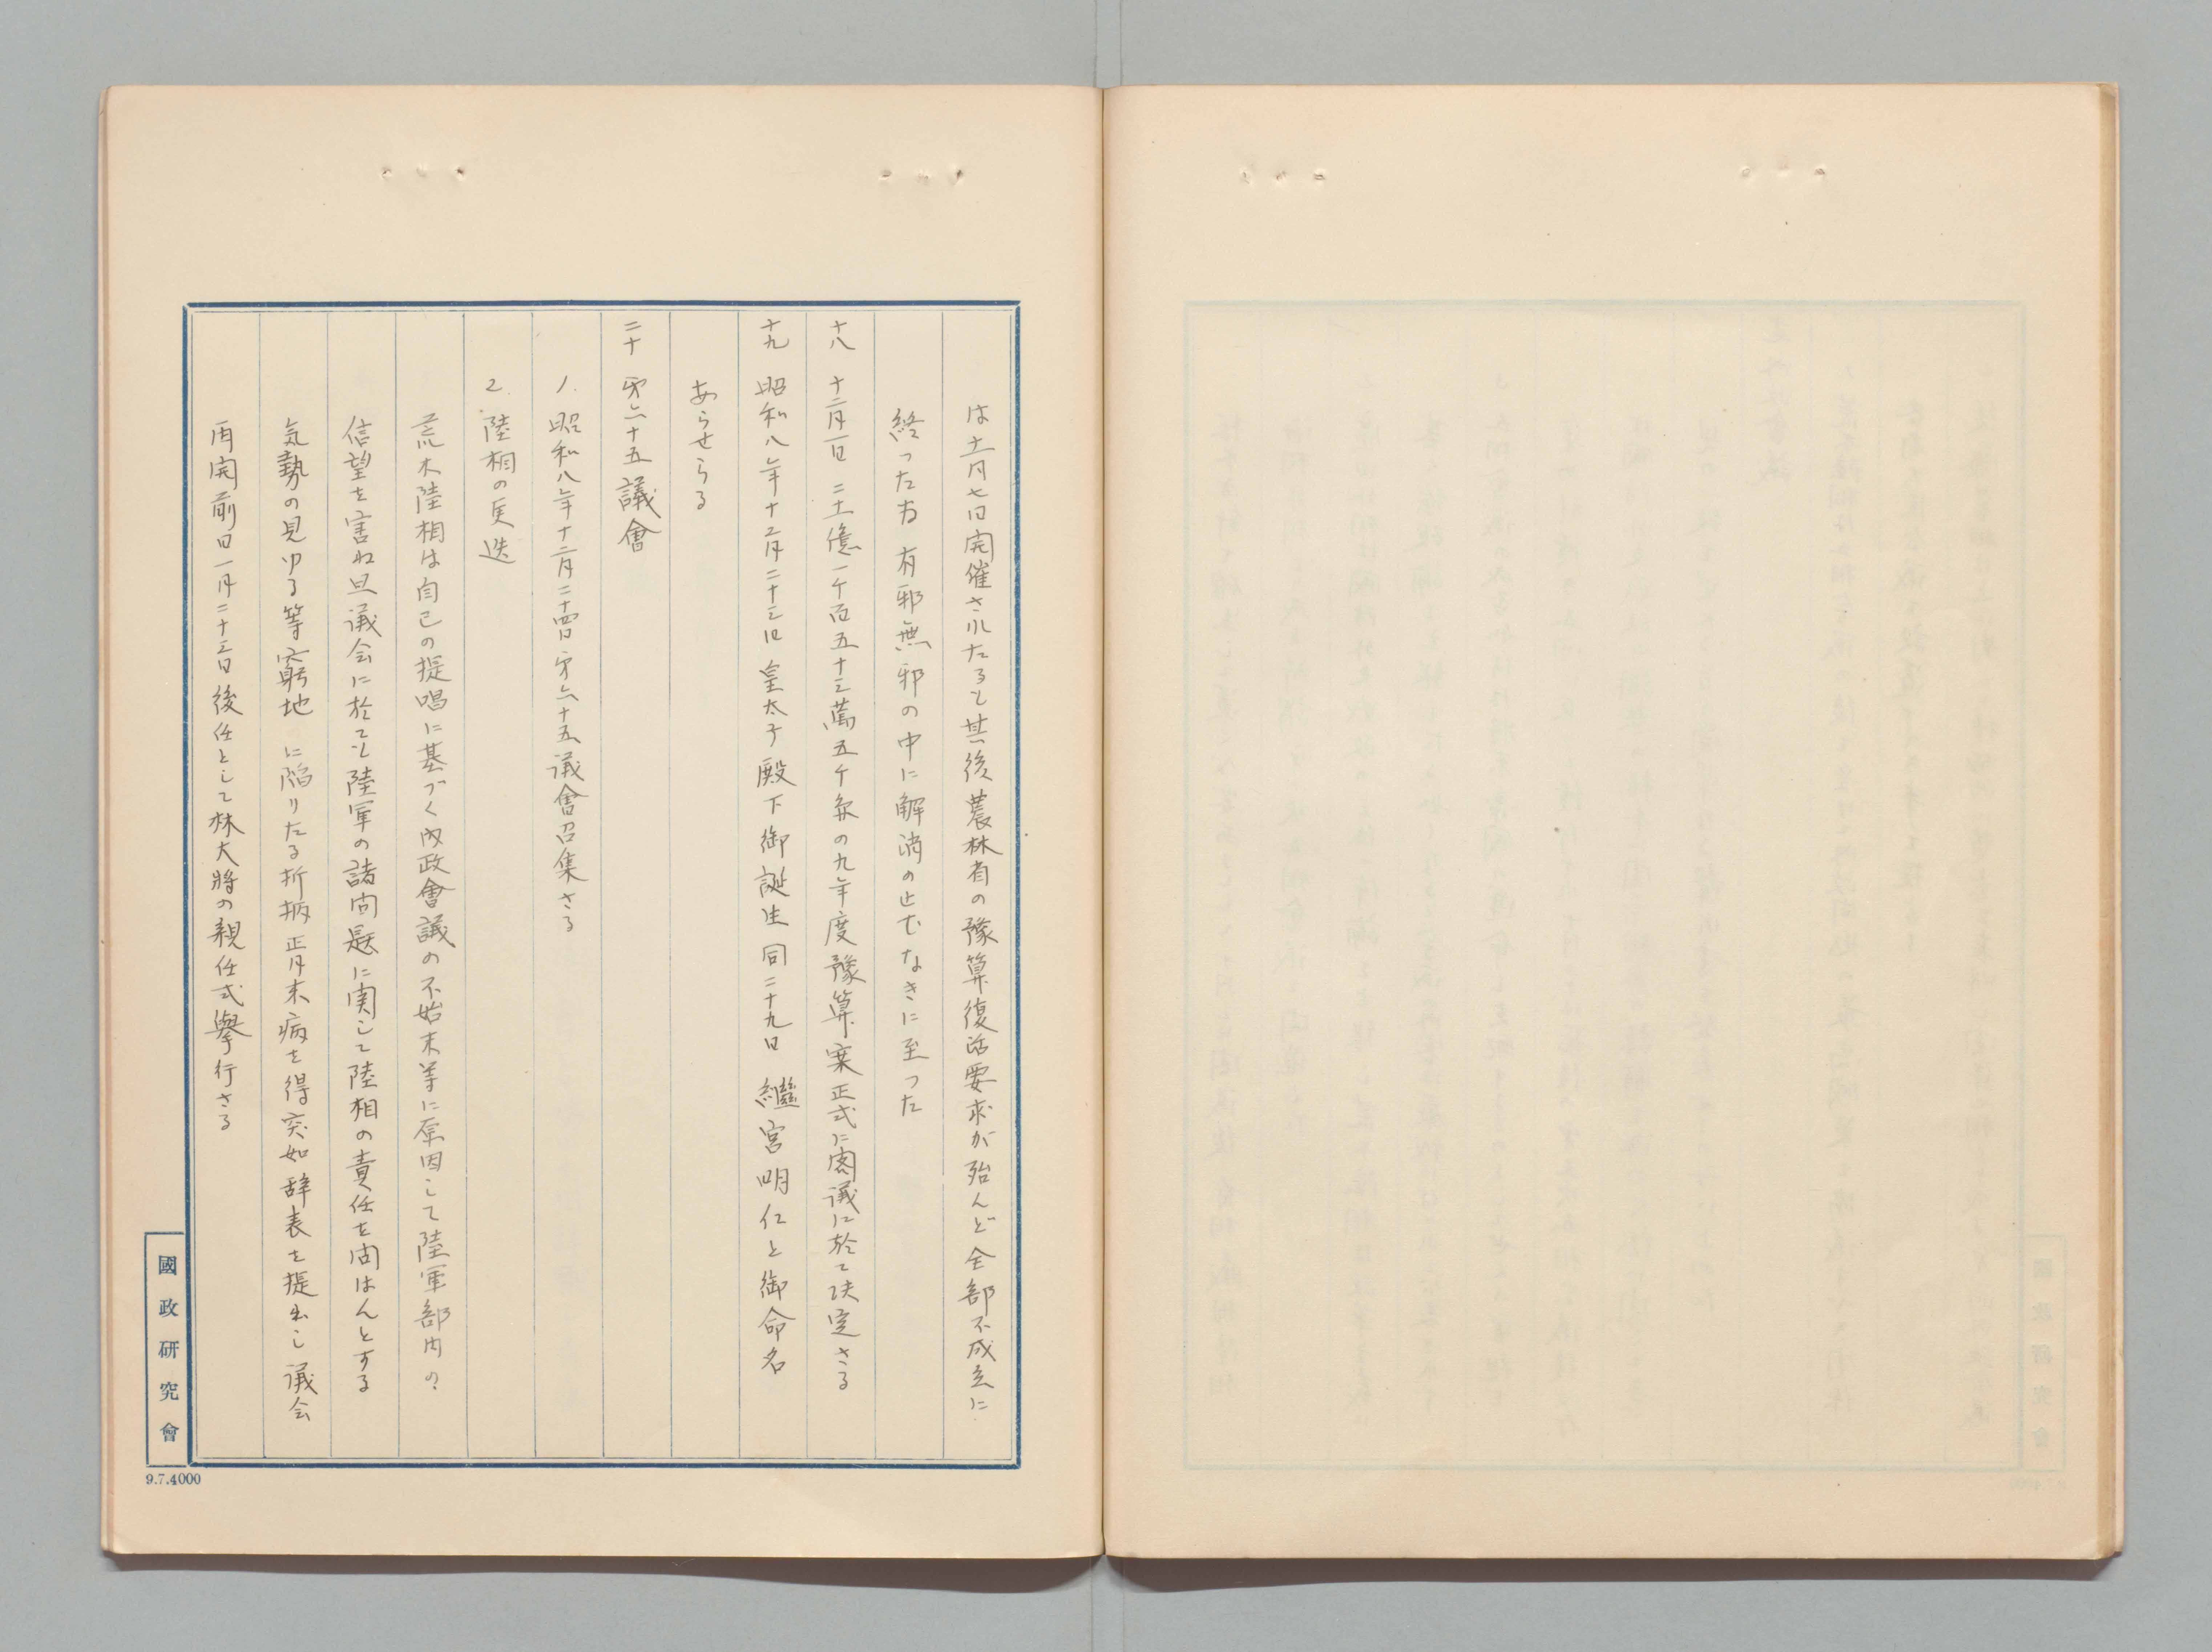 は十一月七日開催されたると其後農林省の豫算復活要求が殆んど全部不成立に
終った為 有邪無邪の中に解消の止むなきに至った
十八 十二月一日 二十一億一千百五十三萬五千余の九年度豫算案正式に閣議に於て决定さる
十九 昭和八年十二月二十三日 皇太子殿下御誕生 同二十九日 繼宮明仁と御命名
あらせらる
二十 第六十五議會
1. 昭和八年十二月二十四日 第六十五議會召集さる
2. 陸相の更迭
荒木陸相は自己の提唱に基づく内政會議の不始末等に原因して陸軍部内の
信望を害ね且議会に於ても陸軍の諸问題に関して陸相の責任を问はんとする
気勢の見ゆる等窮地に陥りたる折柄 正月末病を得突如辞表を提出し議会
再開前日一月二十三日後任として林大將の親任式擧行さる
國政研究會
9.7.4000